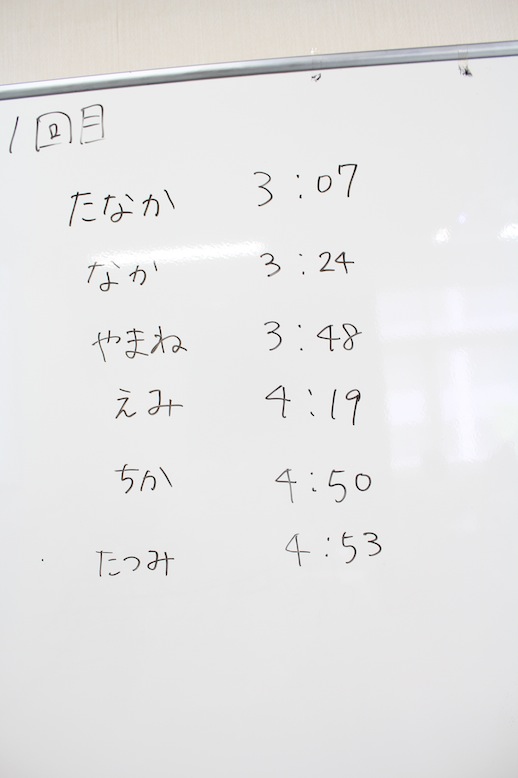 1回目
たなか 3:07
なか 3:24
やまね 3:48
えみ 4:19
ちか 4:50
たつみ 4:53